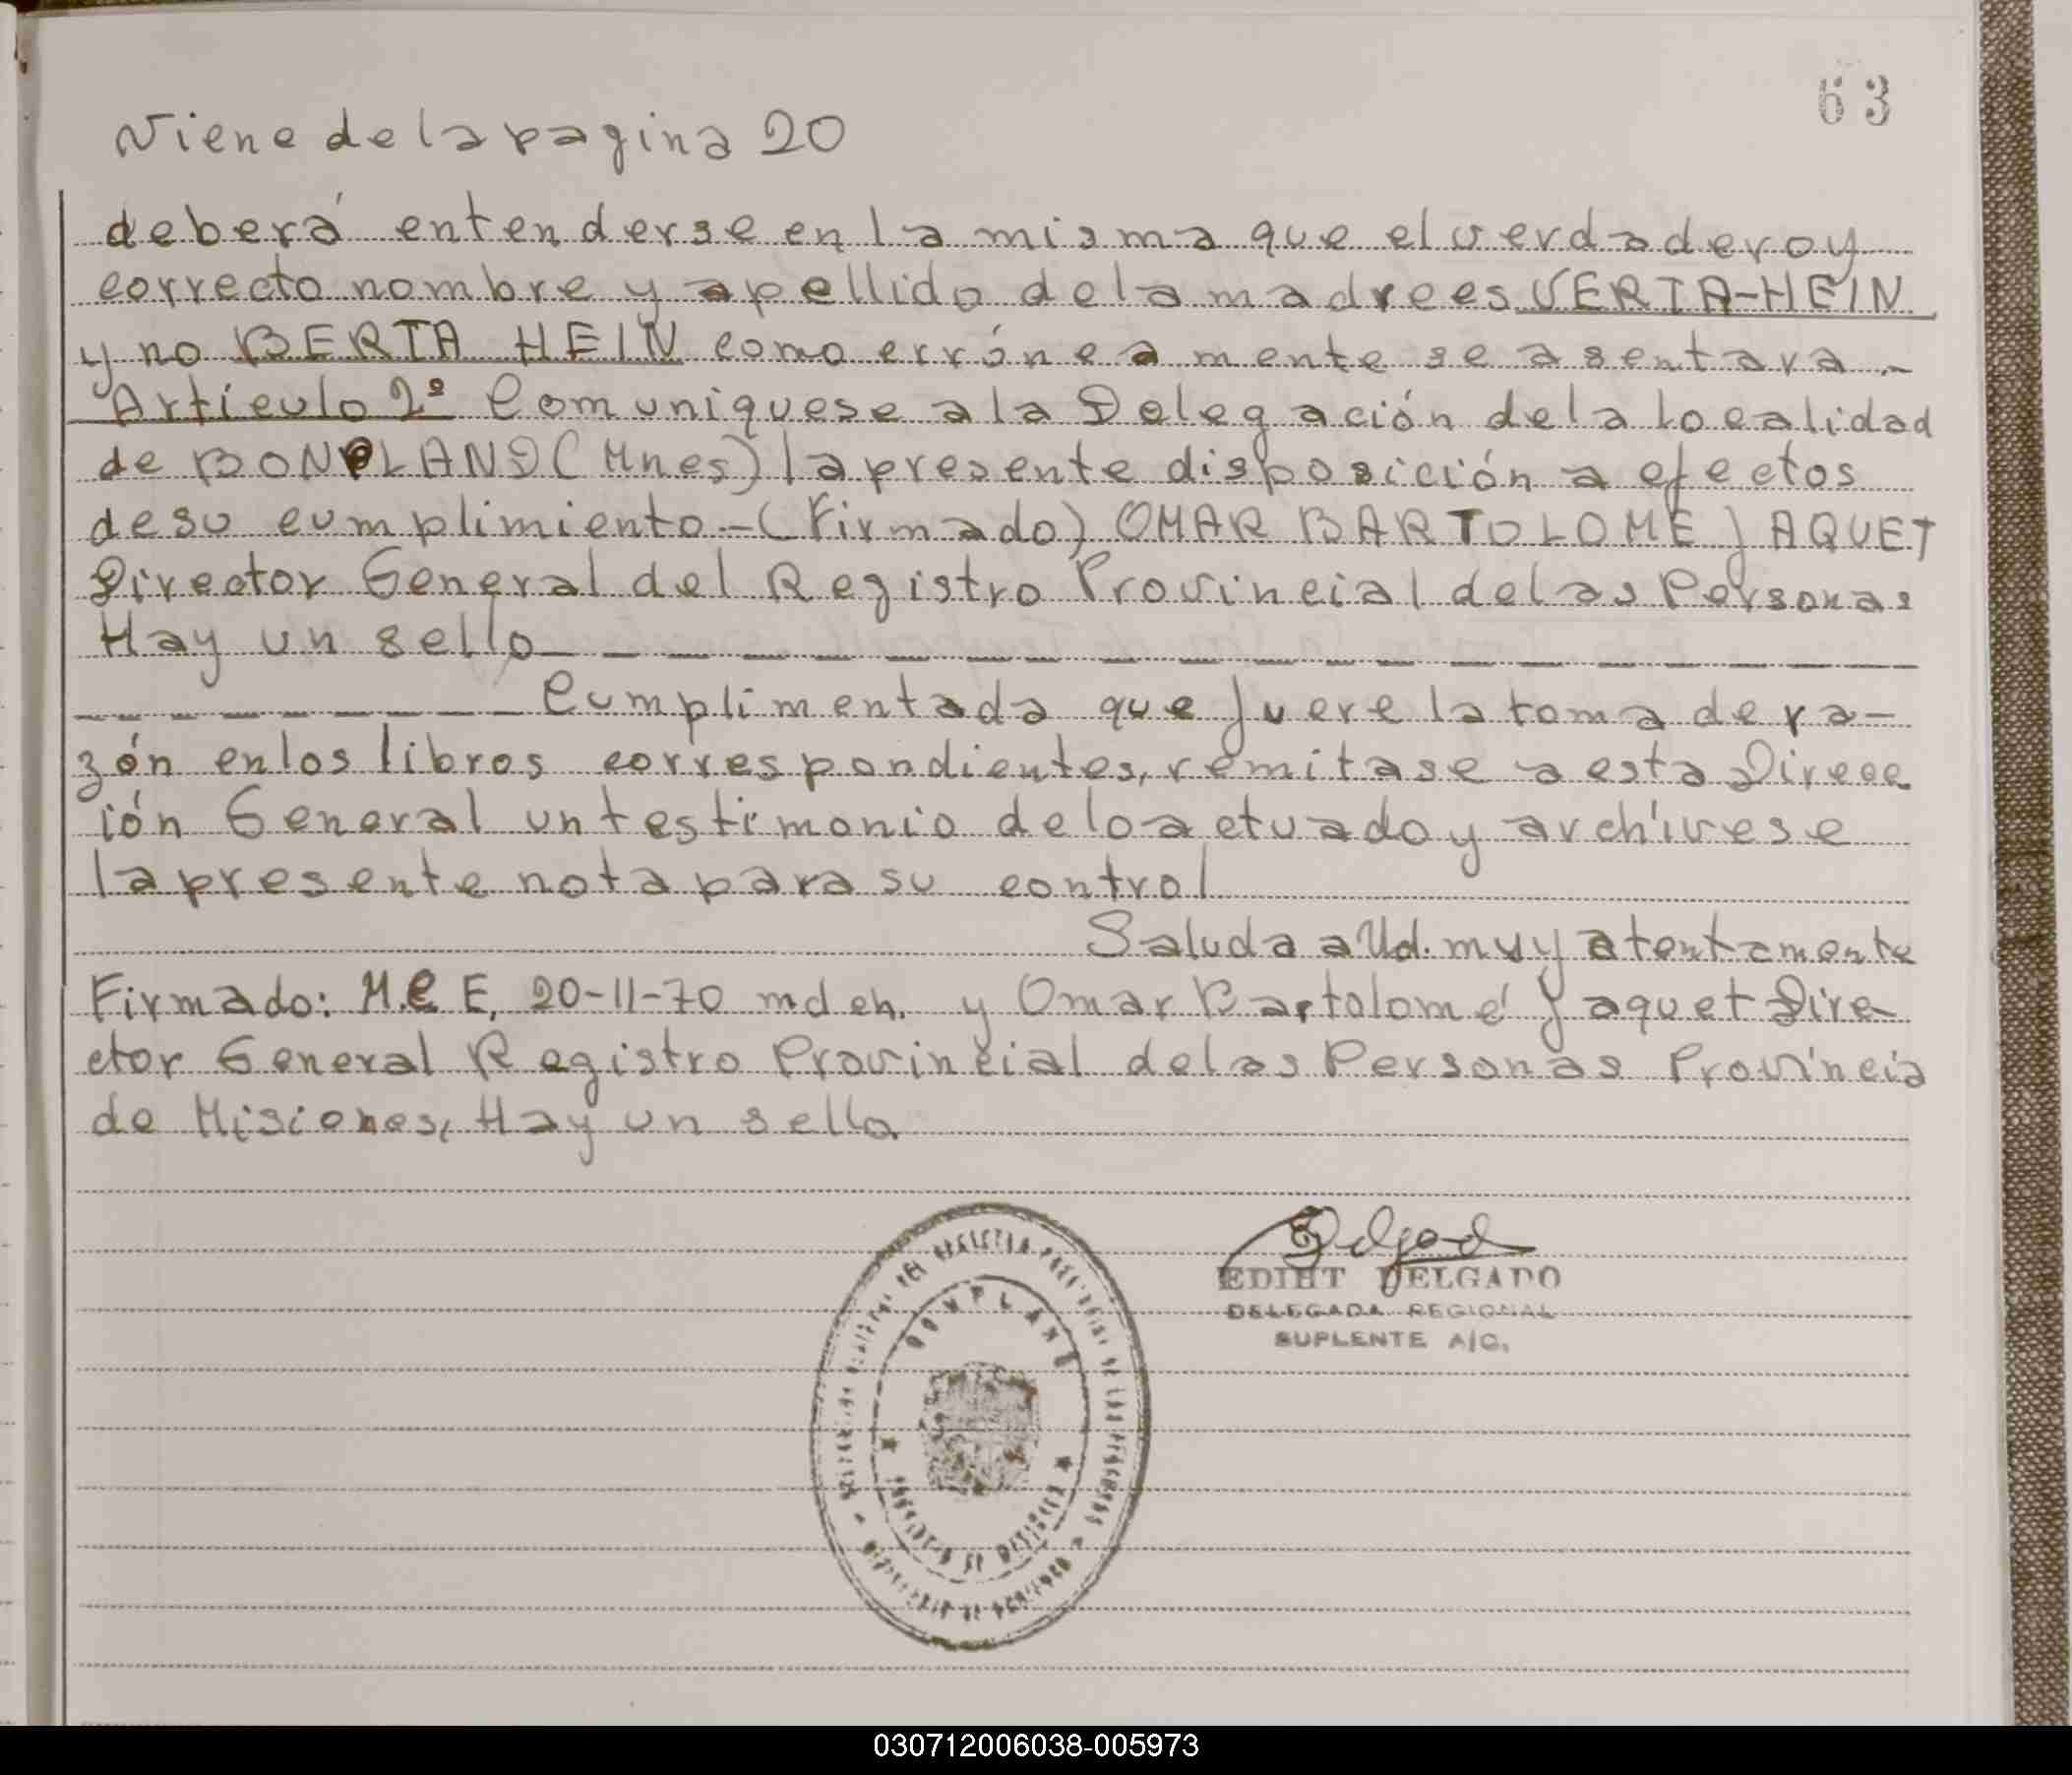 63
Viene de la pagina 20
deberá entenderse en la misma que el verdadero y
correcto nombre y apellido de la madre es VERTA-HEIN
y no BERTA HEIN como erróneamente se asentara.-
Artículo 2º Comuniquese a la Delegación de la Localidad
de BONPLAND (Mnes) la presente disposición a efectos
de su cumplimiento-(Firmado) OMAR BARTOLOME JAQUET
Director General del Registro Provincial de las Personas
Hay un sello
Cumplimentada que fuere la toma de ra-
zón en los libros correspondientes, remitase a esta Direcc
ión General un testimonio de lo actuado y archívese
la presente nota para su control
Saluda a Ud. muy atentamente
Firmado: M.C E. 20-11-70 md ch. y Omar Bartolomé Jaquet Dire
ctor General Registro Provincial de las Personas Provincia
de Misiones, Hay un sello
Delgado
EDIHT DELGADO
DELEGADA REGIONAL
SUPLENTE A/C.
BONPLAND
030712006038-005973